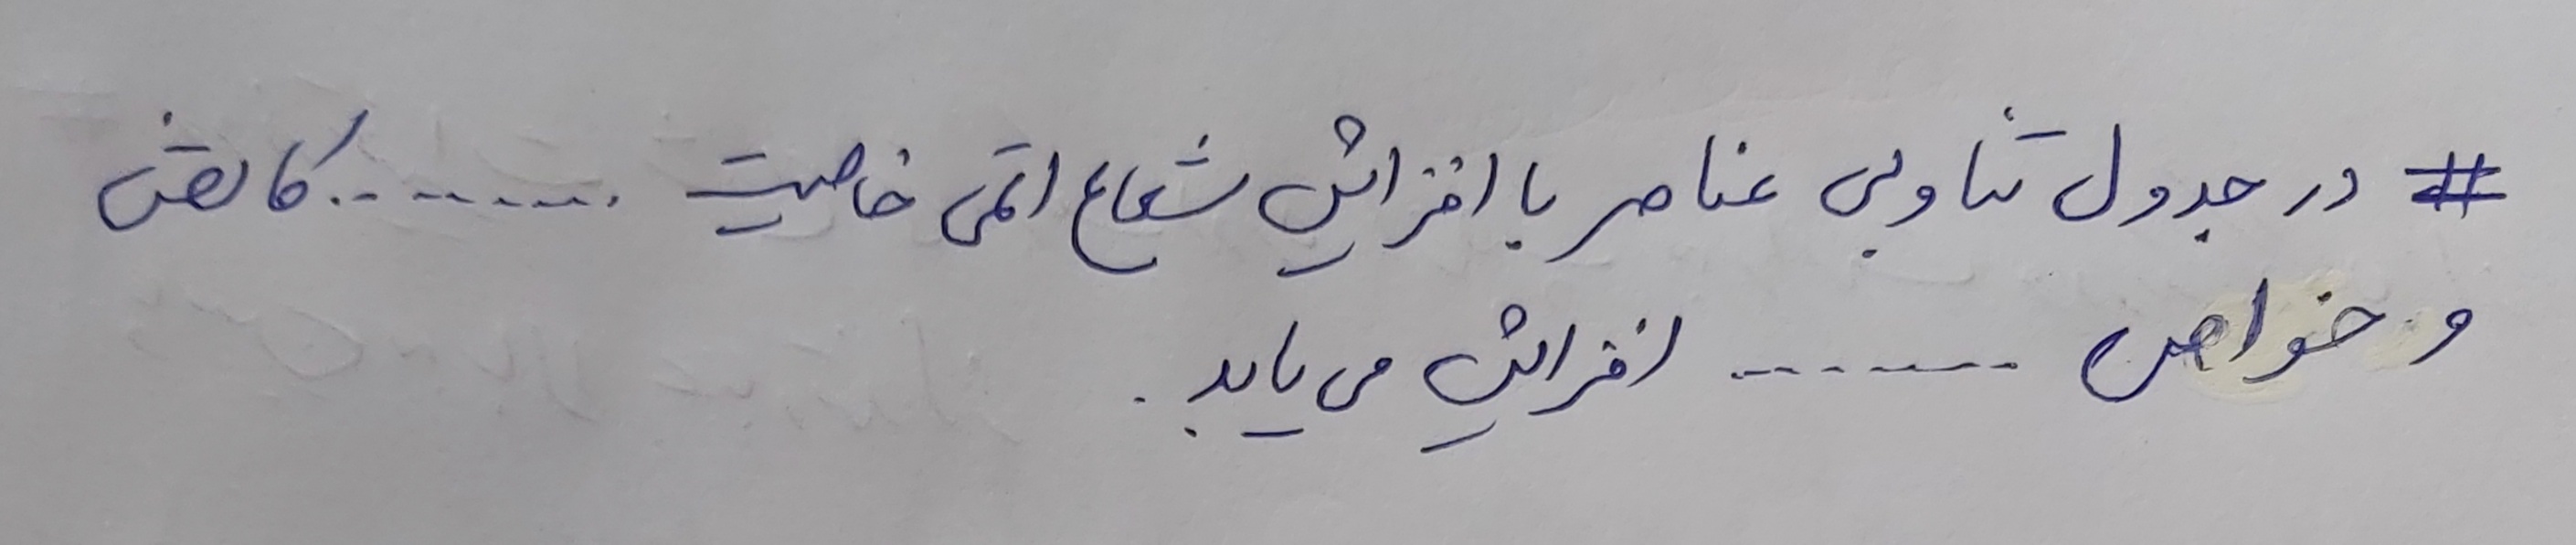 # در جدول تناوبی عناصر با افزایش شعاع اتمی خاصیت ......... کاهش
و خواص ......... افزایش می یابد.